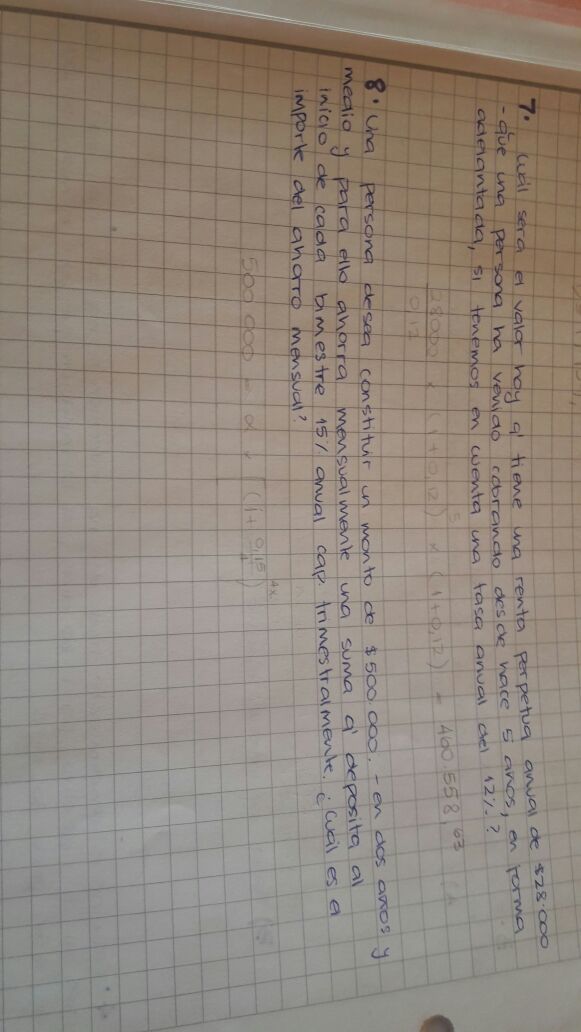 7. Cuál será el valor hoy q' tiene una renta perpetua anual de $28.000
- que una persona ha venido cobrando desde hace 5 años, en forma
adelantada, si tenemos en cuenta una tasa anual del 12%.?
28000 x (1+0,12)^5 x (1+0,12) = 460.558,63
0,12
8. Una persona desea constituir un monto de $500.000.- en dos años y
medio y para ello ahorra mensualmente una suma q' deposita al
inicio de cada bimestre 15% anual cap. trimestralmente. ¿Cuál es el
importe del ahorro mensual?
500 000 = α x ((1+ 0,15
4